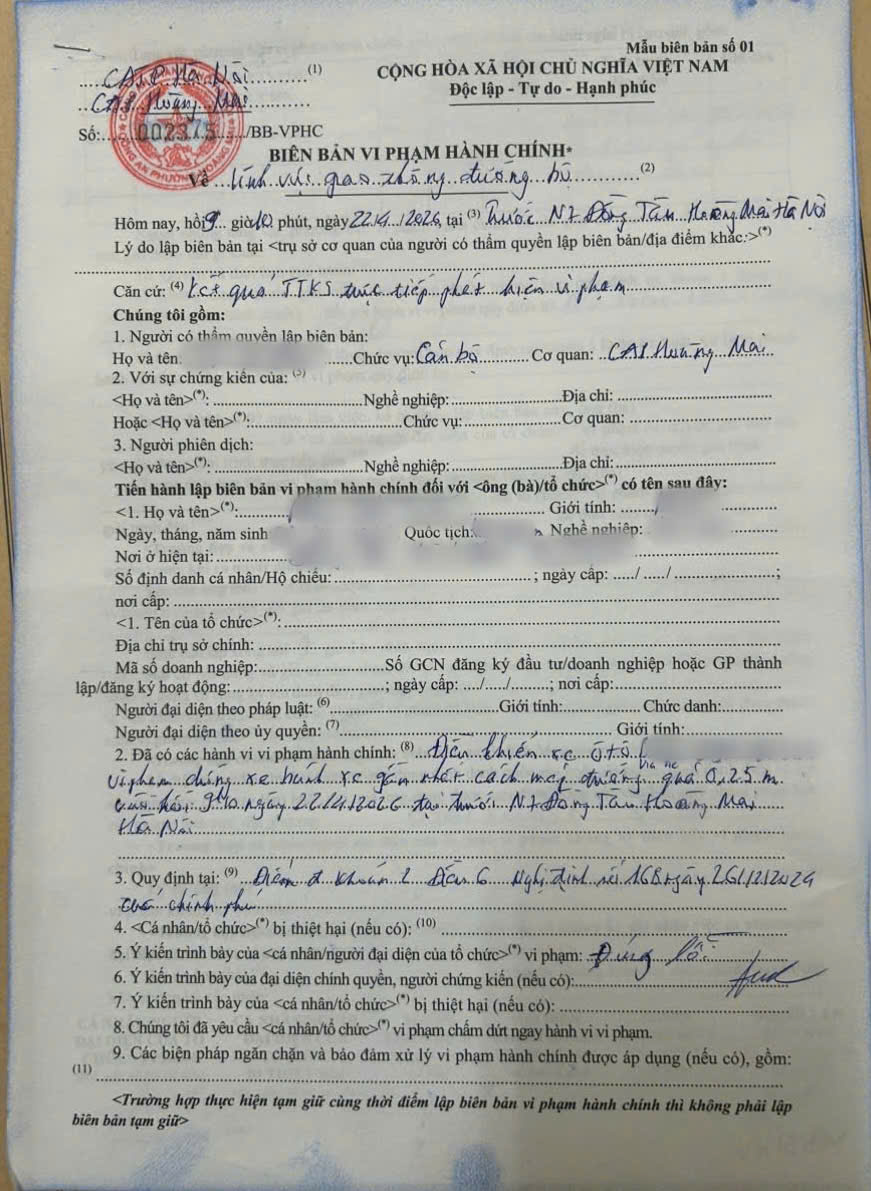 Mẫu biên bản số 01
CATP Hà Nội (1)
CỘNG HÒA XÃ HỘI CHỦ NGHĨA VIỆT NAM
CAP Hoàng Mai
Độc lập - Tự do - Hạnh phúc
Số: 002375 /BB-VPHC
BIÊN BẢN VI PHẠM HÀNH CHÍNH*
Về lĩnh vực giao thông đường bộ (2)
Hôm nay, hồi 9 giờ 10 phút, ngày 22/4/2026, tại (3) trước N7 Đồng Tàu Hoàng Mai Hà Nội
Lý do lập biên bản tại <trụ sở cơ quan của người có thẩm quyền lập biên bản/địa điểm khác:>(*)
Căn cứ: (4) Kết quả TTKS trực tiếp phát hiện vi phạm
Chúng tôi gồm:
1. Người có thẩm quyền lập biên bản:
Họ và tên Chức vụ: Cán bộ Cơ quan: CAP Hoàng Mai
2. Với sự chứng kiến của: (5)
<Họ và tên>(*): Nghề nghiệp: Địa chỉ:
Hoặc <Họ và tên>(*): Chức vụ: Cơ quan:
3. Người phiên dịch:
<Họ và tên>(*): Nghề nghiệp: Địa chỉ:
Tiến hành lập biên bản vi phạm hành chính đối với <ông (bà)/tổ chức>(*) có tên sau đây:
<1. Họ và tên>(*): Giới tính:
Ngày, tháng, năm sinh Quốc tịch: Nghề nghiệp:
Nơi ở hiện tại:
Số định danh cá nhân/Hộ chiếu: ; ngày cấp: / / ;
nơi cấp:
<1. Tên của tổ chức>(*):
Địa chỉ trụ sở chính:
Mã số doanh nghiệp: Số GCN đăng ký đầu tư/doanh nghiệp hoặc GP thành
lập/đăng ký hoạt động: ; ngày cấp: / / ; nơi cấp:
Người đại diện theo pháp luật: (6) Giới tính: Chức danh:
Người đại diện theo ủy quyền: (7) Giới tính:
2. Đã có các hành vi vi phạm hành chính: (8) Điều khiển xe ô tô
vi phạm dừng xe bánh xe gần nhất cách mép đường quá 0,25 m
vào hồi 9h10 ngày 22/4/2026 tại trước N7 Đồng Tàu Hoàng Mai
Hà Nội
3. Quy định tại: (9) Điểm d khoản 2 Điều 6 Nghị định số 168 ngày 26/12/2024
của chính phủ
4. <Cá nhân/tổ chức>(*) bị thiệt hại (nếu có): (10)
5. Ý kiến trình bày của <cá nhân/người đại diện của tổ chức>(*) vi phạm: Đúng lỗi
6. Ý kiến trình bày của đại diện chính quyền, người chứng kiến (nếu có):
7. Ý kiến trình bày của <cá nhân/tổ chức>(*) bị thiệt hại (nếu có):
8. Chúng tôi đã yêu cầu <cá nhân/tổ chức>(*) vi phạm chấm dứt ngay hành vi vi phạm.
9. Các biện pháp ngăn chặn và bảo đảm xử lý vi phạm hành chính được áp dụng (nếu có), gồm:
(11)
<Trường hợp thực hiện tạm giữ cùng thời điểm lập biên bản vi phạm hành chính thì không phải lập
biên bản tạm giữ>